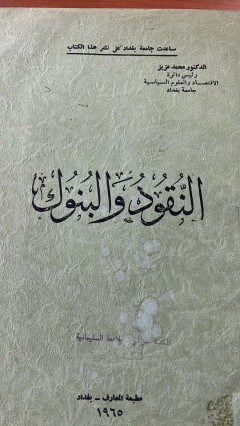 ساعدت جامعة بغداد على نشر هذا الكتاب
الدكتور محمد عزيز
رئيس دائرة
الاقتصاد والعلوم السياسية
جامعة بغداد
النقود والبنوك
الجامعة السليمانية
مطبعة المعارف - بغداد
١٩٦٥